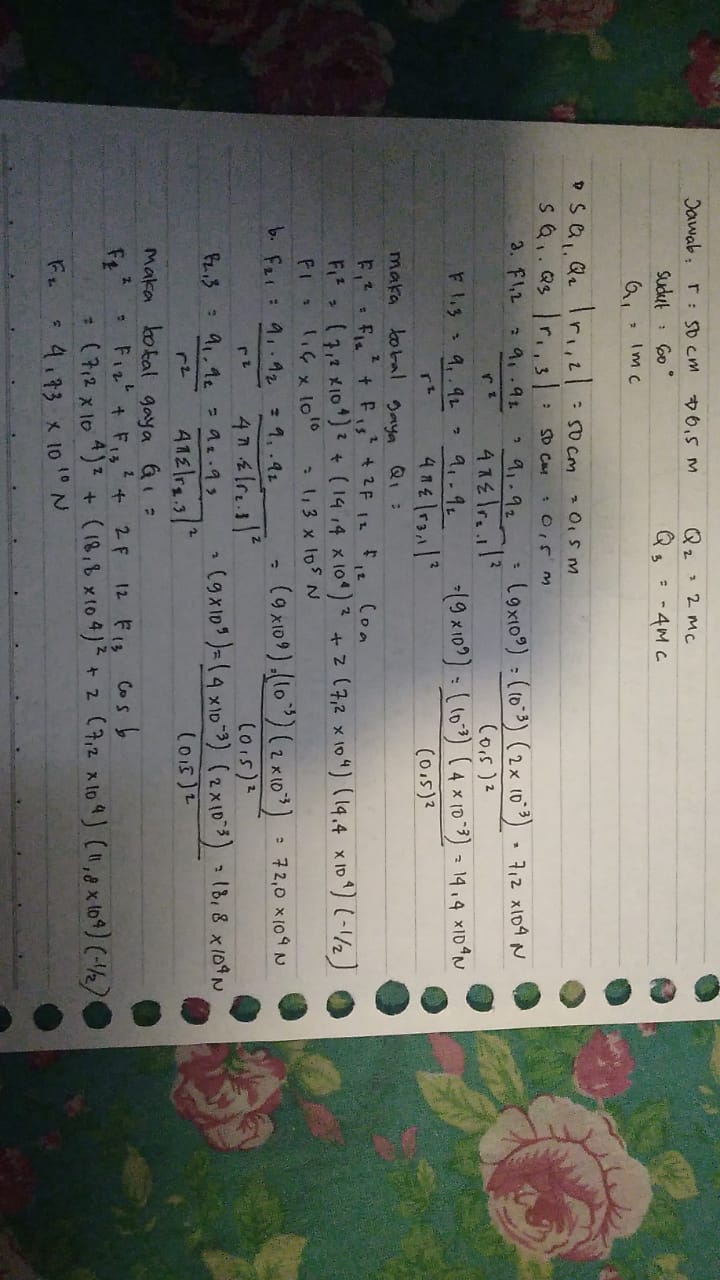 Jawab: r : 50 cm ⇒ 0,5 m Q₂ = 2 MC
Sudut : 60° Q₃ = -4 MC
Q₁ = 1 MC
S Q₁. Q₂ |r₁,2| = 50 cm = 0,5 m
S Q₁. Q₃ |r₁,3| : 50 cm = 0,5 m
a. F1,2 = q₁.q₂/r² = q₁.q₂/4πε|r₂.1|² = (9x10⁹) = (10⁻³) (2 x 10⁻³)/(0,5)² = 7,2 x10⁴ N
F 1,3 = q₁.q₂/r² = q₁.q₂/4πε|r3,1|² = (9 x10⁹) = (10⁻³) (4 x10⁻³)/(0.5)² = 14,4 x10⁴ N
maka total gaya Q₁ :
F₁² = F₁₂² + F₁₃² + 2F 12 F₁₂ Coa
F₁² = (7,2 x10⁴)² + (14,4 x10⁴)² + 2 (7,2 x 10⁴) (14,4 x10⁴) (-1/2)
F1 = 1,6 x 10¹⁰ = 1,3 x 10⁵ N
b. F₂₁ = q₁.q₂/r² = q₁.q₂/4π.ε|r₂.3|² = (9x10⁹) = (10⁻³) (2 x10⁻³)/(0,5)² = 72,0 x10⁴ N
F2,3 = q₁.q₂/r² = q₂.q₃/4πε|r₂.3|² = (9x10⁹) = (4 x10⁻³) (2x10⁻³)/(0,5)² = 18,8 x10⁴ N
maka total gaya Q₁ =
F₂² = F₁₂² + F₁₃² + 2F 12 F₁₃ Cos b
= (7,2 x 10⁴)² + (18,8 x10⁴)² + 2 (7,2 x10⁴) (11,8x10⁴) (-1/2)
F₂ = 4,73 x 10¹⁰ N